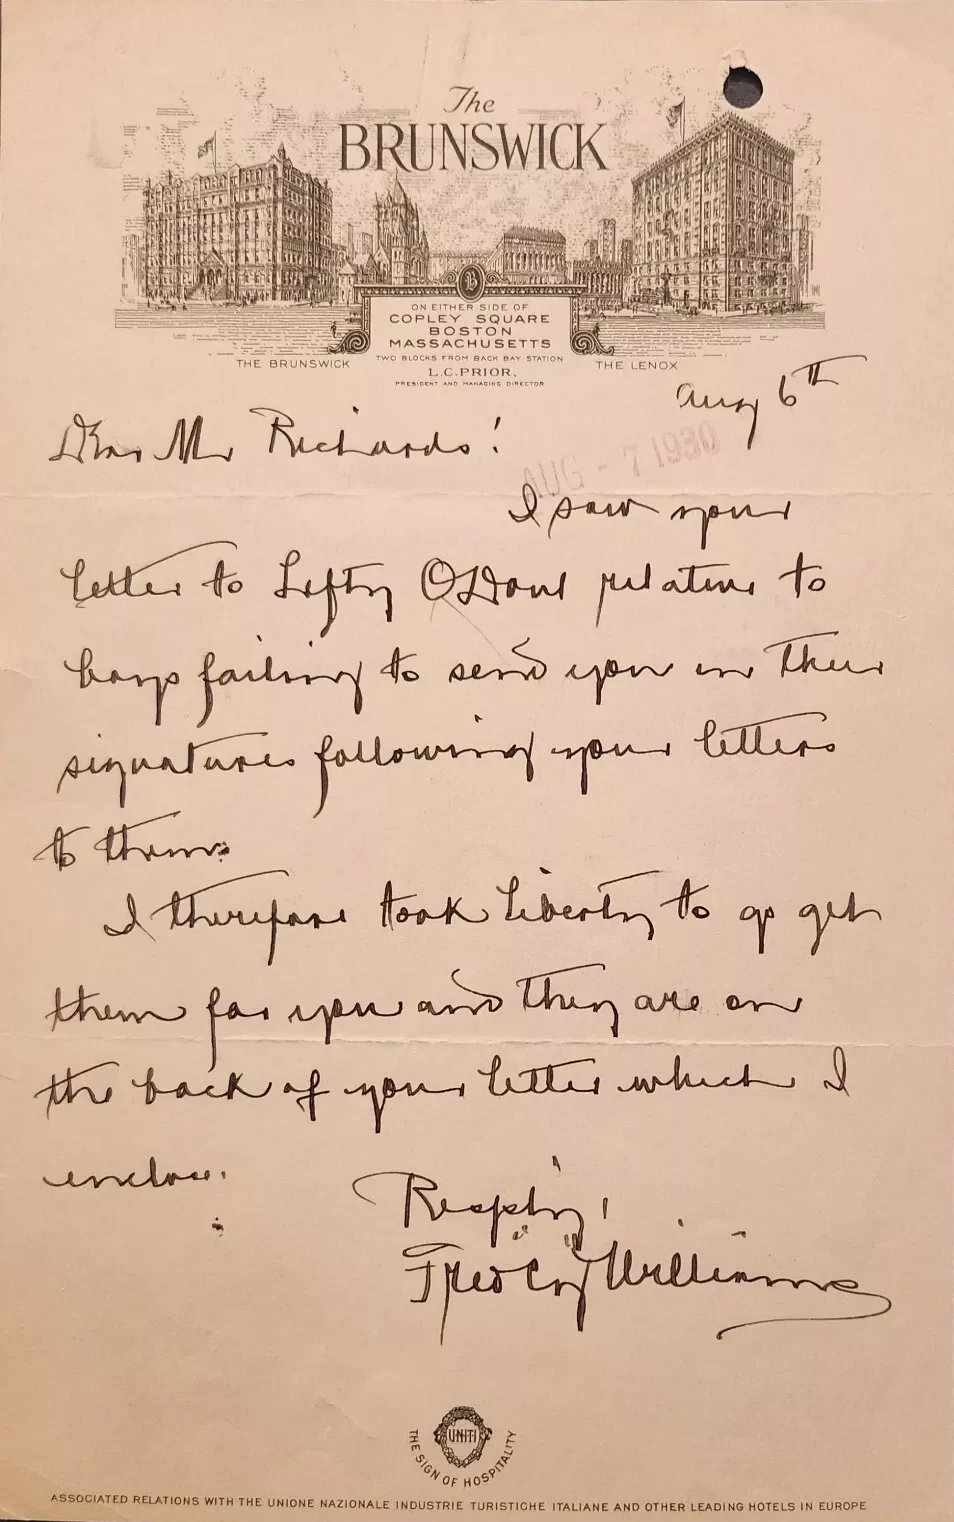 The
BRUNSWICK
B
ON EITHER SIDE OF
COPLEY SQUARE
BOSTON
MASSACHUSETTS
TWO BLOCKS FROM BACK BAY STATION
L.C. PRIOR,
PRESIDENT AND MANAGING DIRECTOR
THE BRUNSWICK
THE LENOX
Aug 6th
Dear Mr Richards!
AUG - 7 1930
I saw your
letter to Lefty O'Doul relative to
boys failing to send you in their
signatures following your letters
to them.
I therefore took liberty to go get
them for you and they are on
the back of your letter which I
enclose.
Respfly,
Fred "Cy" Williams
UNITI
THE SIGN OF HOSPITALITY
ASSOCIATED RELATIONS WITH THE UNIONE NAZIONALE INDUSTRIE TURISTICHE ITALIANE AND OTHER LEADING HOTELS IN EUROPE